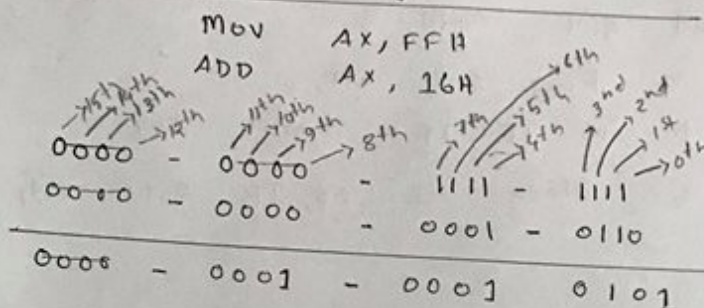 MOV AX, FFH
ADD AX, 16H
15th 14th 13th 12th 11th 10th 9th 8th 7th 6th 5th 4th 3nd 2nd 1st 0th
0000 - 0000 - 1111 - 1111
0000 - 0000 - 0001 - 0110
0000 - 0001 - 0001 0101